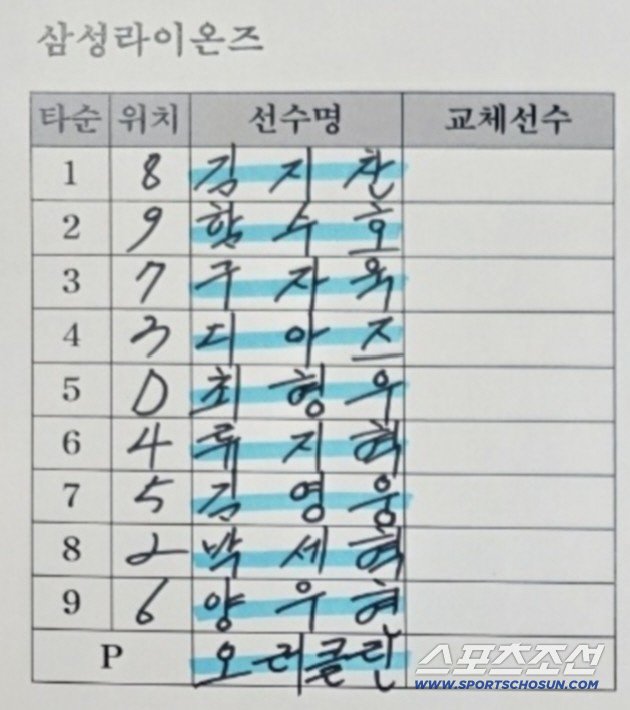 삼성라이온즈
타순 위치 선수명 교체선수
1 8 김지찬
2 9 함수호
3 7 구자욱
4 3 디아즈
5 D 최형우
6 4 류지혁
7 5 김영웅
8 2 박세혁
9 6 양우현
P 오러클린
스포츠조선
WWW.SPORTSCHOSUN.COM